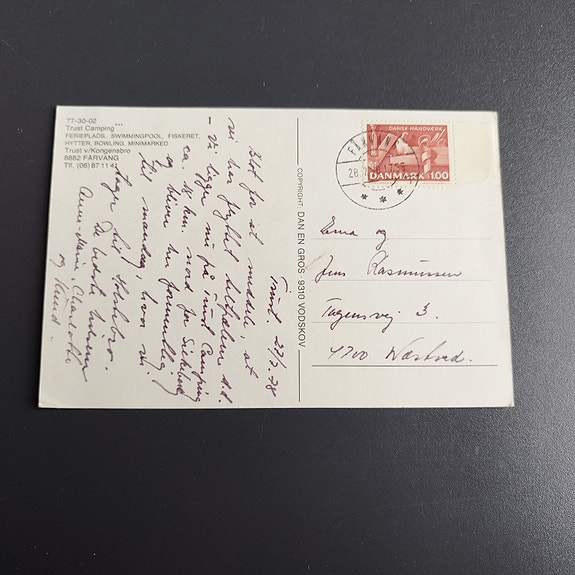 77-30-02
Trust Camping ***
FERIEPLADS, SWIMMINGPOOL, FISKERET,
HYTTER, BOWLING, MINIMARKED
Trust v/Kongensbro
8882 FÅRVANG
Tlf. (06) 87 11 4
Trust. 27/7-78
blot for at meddele, at
vi har flyttet
- Vi ligger nu på Trust Camping
ca. km. nord for Silkeborg
og bliver her formentlig
til mandag, hvor vi
tager til Holstebro.
De bedste hilsener
Anne-Marie, Charlotte
og Knud.
COPYRIGHT: DAN EN GROS · 9310 VODSKOV
DANSK HÅNDVÆRK
DANMARK 100
28.
Erna og
Jens Rasmussen
Tagensvej 3.
4700 Næstved.